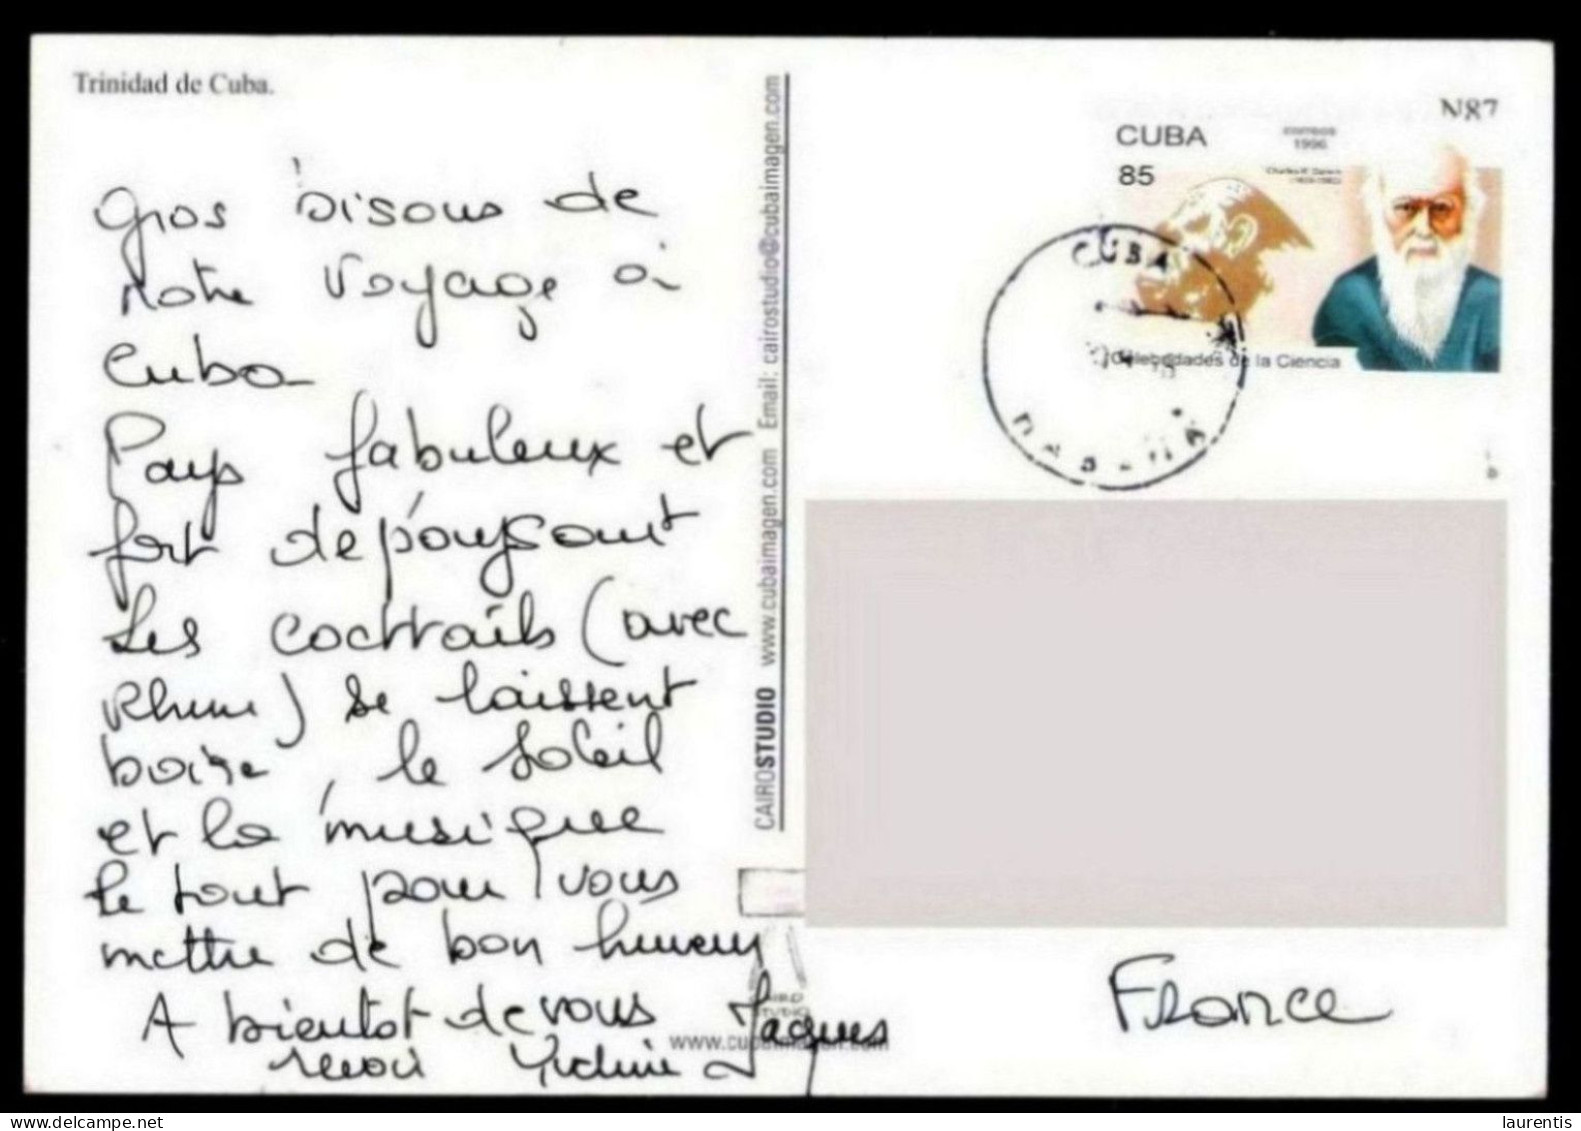 Trinidad de Cuba.
Gros bisous de
notre voyage à
Cuba
Pays fabuleux et
fort dépaysant
Les cocktails (avec
Rhum) se laissent
boire, le soleil
et la musique
le tout pour vous
mettre de bon humeur
A bientot de vous
revoir
Jaques
CAIROSTUDIO www.cubaimagen.com Email: cairostudio@cubaimagen.com
www.cubaimagen.com
N87
CUBA
correos
1996
85
Charles R. Darwin
Celebridades de la Ciencia
CUBA
HABANA
France
laurentis